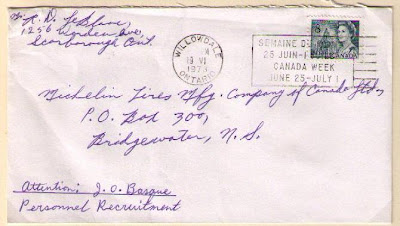 R. D. LeBlanc,
1256
Scarborough Ont.
WILLOWDALE
PM
19 VI
197
ONTARIO
SEMAINE DU
25 JUIN-1
CANADA WEEK
JUNE 25-JULY 1
CANADA
Michelin Tires Mfg. Company of Canada Ltd.,
P.O. Box 300,
Bridgewater, N.S.
Attention: J.O. Basque
Personnel Recruitment